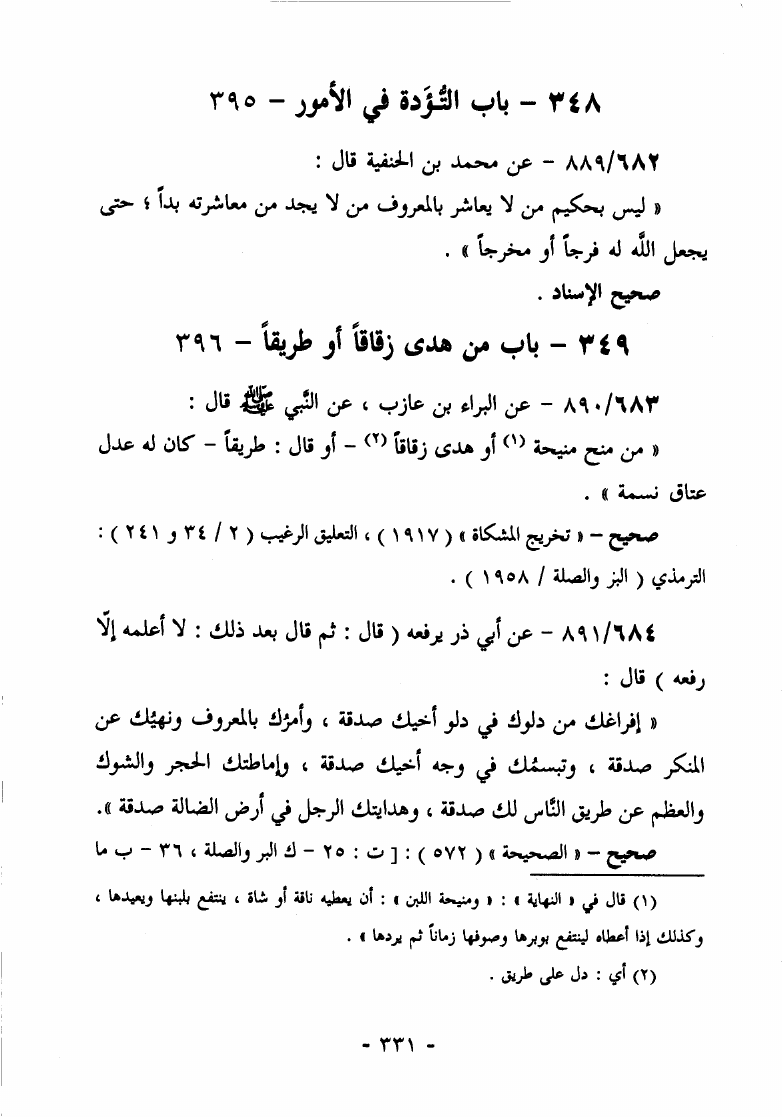 ٣٤٨ - باب التُّؤَدة في الأمور - ٣٩٥
٨٨٩/٦٨٢ - عن محمد بن الحنفية قال :
« ليس بحكيم من لا يعاشر بالمعروف من لا يجد من معاشرته بداً ؛ حتى
يجعل اللَّه له فرجاً أو مخرجاً » .
صحيح الإسناد .
٣٤٩ - باب من هدى زقاقاً أو طريقاً - ٣٩٦
٨٩٠/٦٨٣ - عن البراء بن عازب ، عن النَّبي ﷺ قال :
« من منح منيحة (١) أو هدى زقاقاً (٢) - أو قال : طريقاً - كان له عدل
عتاق نسمة » .
صحيح - « تخريج المشكاة » ( ١٩١٧ ) ، التعليق الرغيب ( ٢ / ٣٤ و ٢٤١ ) :
الترمذي ( البر والصلة / ١٩٥٨ ) .
٨٩١/٦٨٤ - عن أبي ذر يرفعه ( قال : ثم قال بعد ذلك : لا أعلمه إلّا
رفعه ) قال :
« إفراغك من دلوك في دلو أخيك صدقة ، وأمرُك بالمعروف ونهيُك عن
المنكر صدقة ، وتبسمُك في وجه أخيك صدقة ، وإماطتك الحجر والشوك
والعظم عن طريق النَّاس لك صدقة ، وهدايتك الرجل في أرض الضالة صدقة ».
صحيح - « الصحيحة » ( ٥٧٢ ) : [ ت : ٢٥ - ك البر والصلة ، ٣٦ - ب ما
(١) قال في « النهاية » : « ومنيحة اللبن : أن يعطيه ناقة أو شاة ، ينتفع بلبنها ويعيدها ،
وكذلك إذا أعطاه لينتفع بوبرها وصوفها زماناً ثم يردها » .
(٢) أي : دل على طريق .
- ٣٣١ -